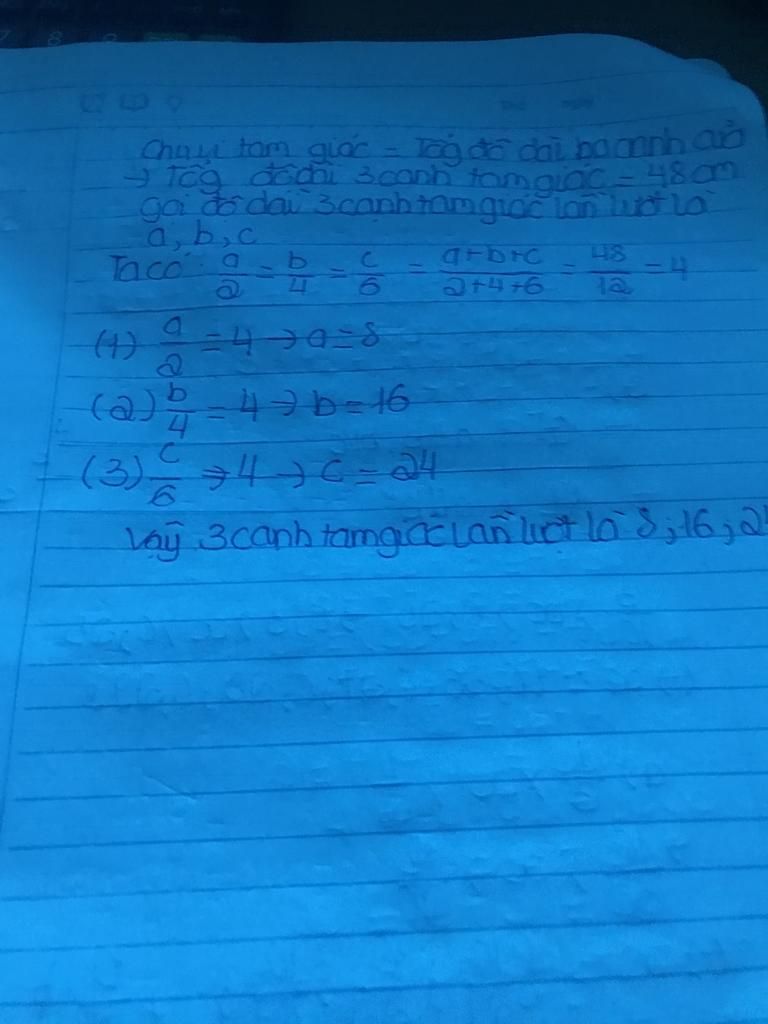 Chu vi tam giác = Tổg độ dài ba cạnh của
→ Tổg độ dài 3 cạnh tam giác = 48 cm
gọi độ dài 3 cạnh tam giác lần lượt là
a, b, c
Ta có: a/2 = b/4 = c/6 = a+b+c/2+4+6 = 48/12 = 4
(1) a/2 = 4 → a = 8
(2) b/4 = 4 → b = 16
(3) c/6 → 4 → c = 24
Vậy 3 cạnh tam giác lần lượt là 8; 16; 2